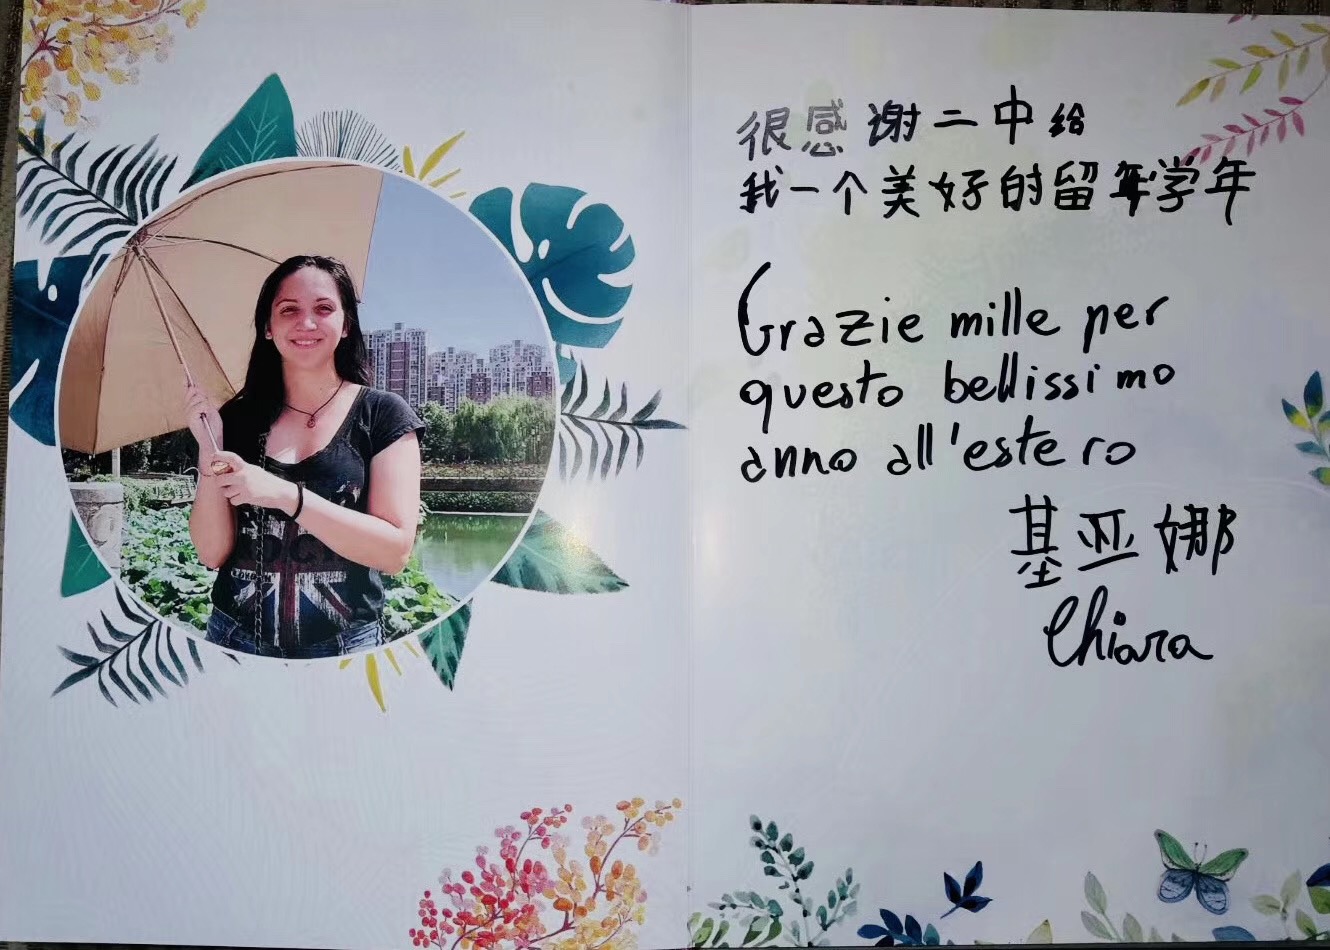 很感谢二中给
我一个美好的留学年
Grazie mille per
questo bellissimo
anno all'estero
基亚娜
Chiara